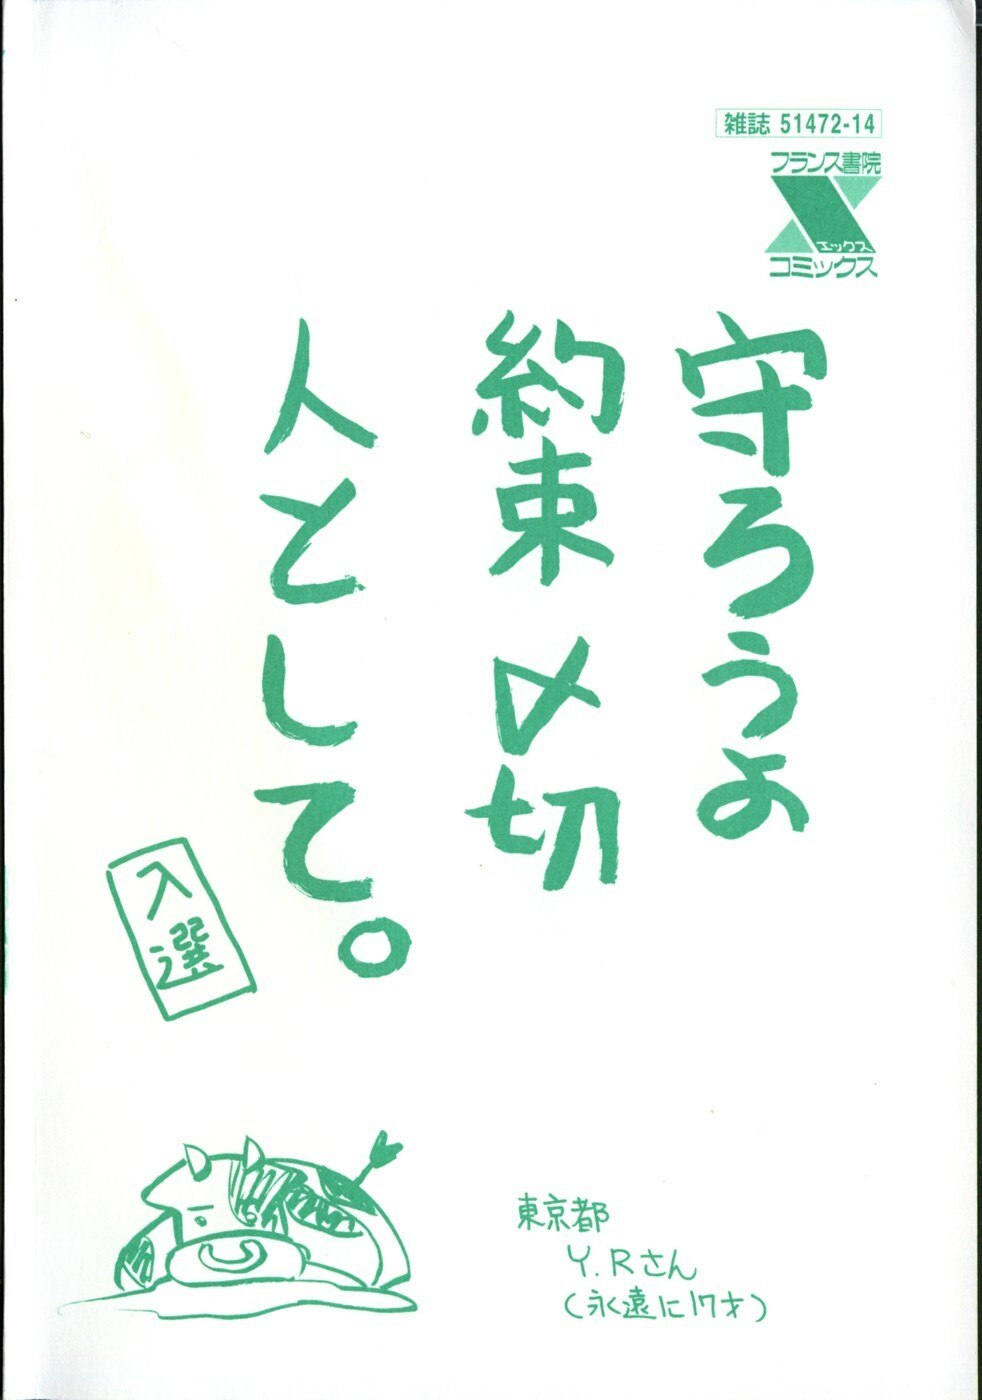 雑誌 51472-14
フランス書院
エックス
コミックス
守ろうよ
約束〆切
人として。
入選
東京都
Y.Rさん
(永遠に17才)